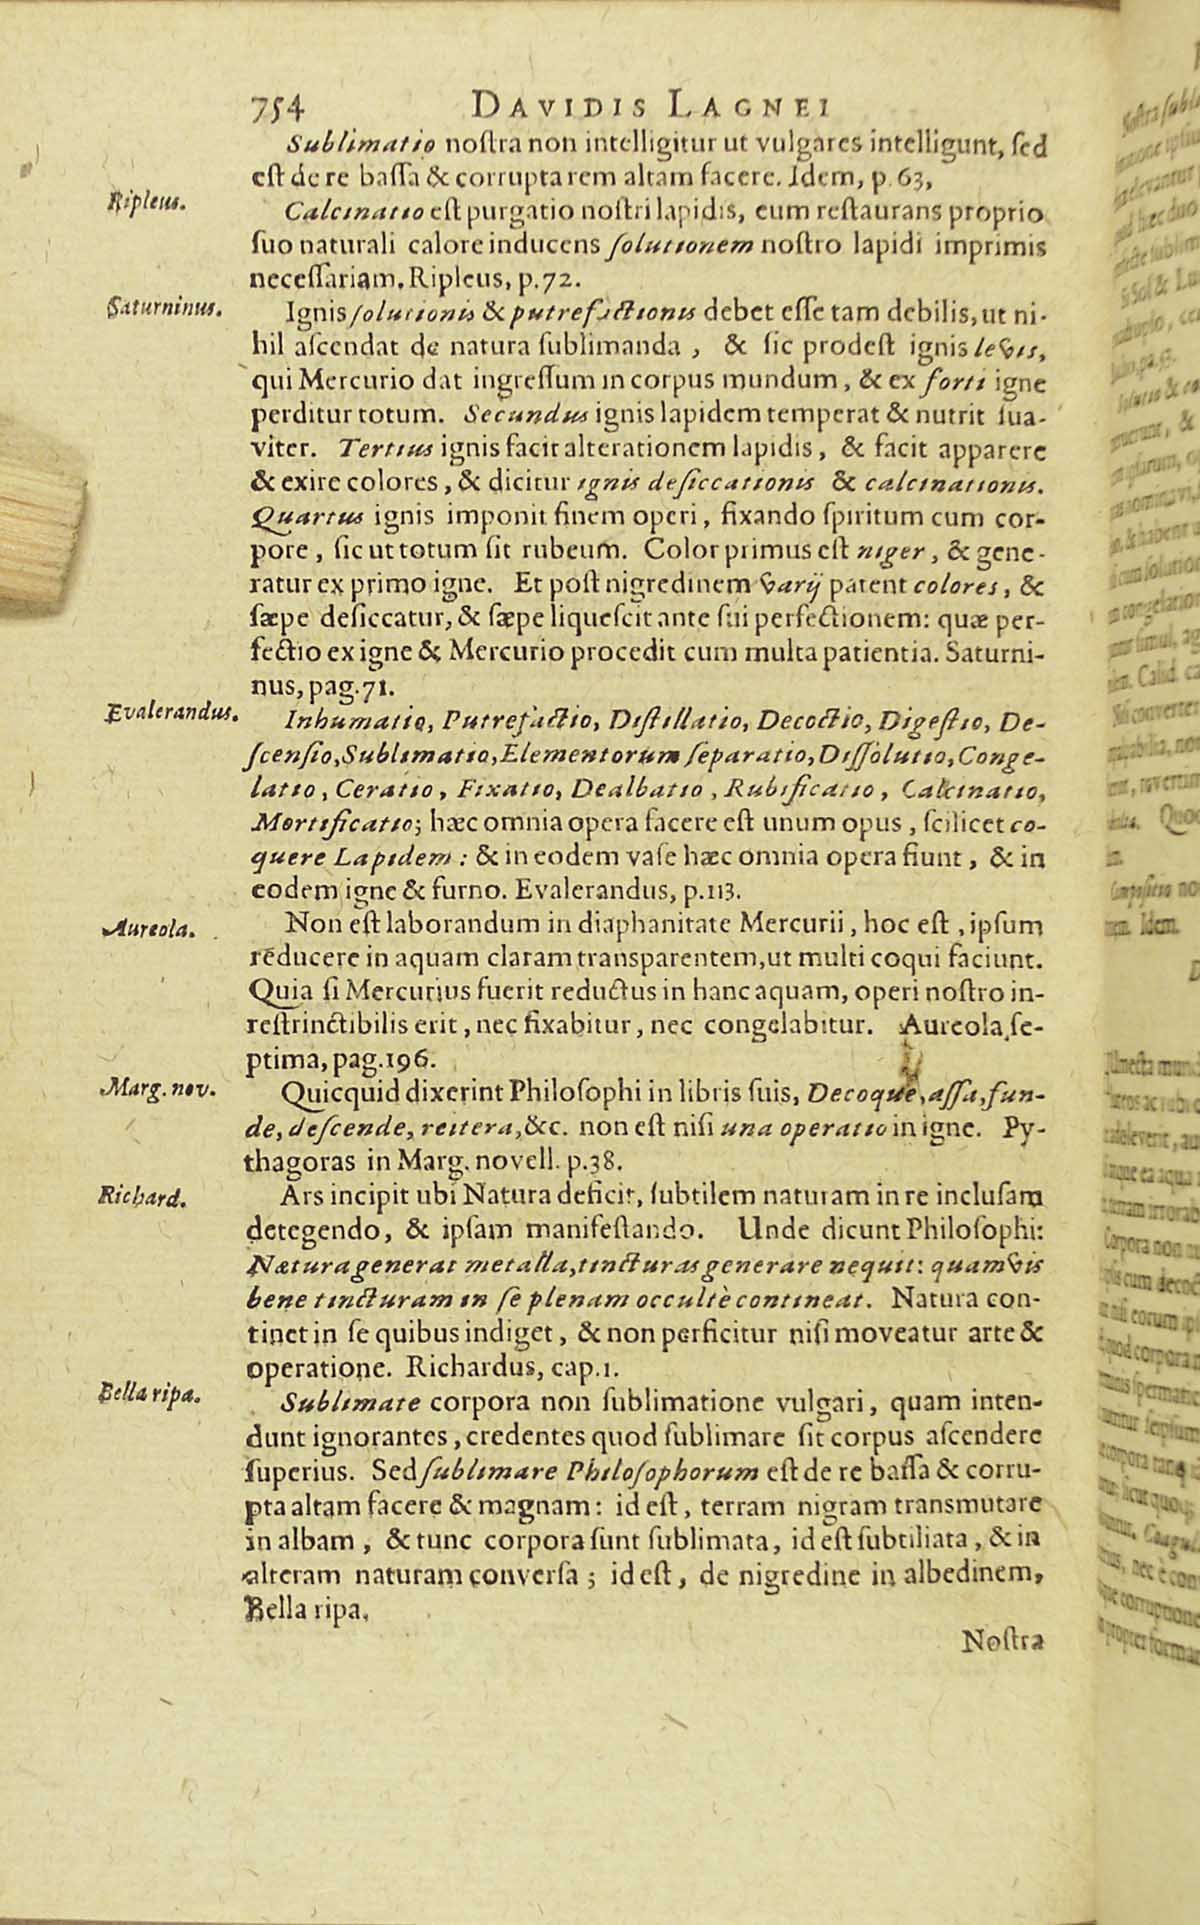 754 DAVIDIS LAGNEI
Sublimatio nostra non intelligitur ut vulgares intelligunt, sed
est de re bassa & corrupta rem altam facere. Idem, p. 63,
Ripleus.
Calcinatio est purgatio nostri lapidis, eum restaurans proprio
suo naturali calore inducens solutionem nostro lapidi imprimis
necessariam. Ripleus, p. 72.
Saturninus.
Ignis solutionis & putrefactionis debet esse tam debilis, ut ni-
hil ascendat de natura sublimanda, & sic prodest ignis levis,
qui Mercurio dat ingressum in corpus mundum, & ex forti igne
perditur totum. Secundus ignis lapidem temperat & nutrit sua-
viter. Tertius ignis facit alterationem lapidis, & facit apparere
& exire colores, & dicitur ignis desiccationis & calcinationis.
Quartus ignis imponit finem operi, fixando spiritum cum cor-
pore, sic ut totum sit rubeum. Color primus est niger, & gene-
ratur ex primo igne. Et post nigredinem varij patent colores, &
sæpe desiccatur, & sæpe liquescit ante sui perfectionem: quæ per-
fectio ex igne & Mercurio procedit cum multa patientia. Saturni-
nus, pag. 71.
Evalerandus.
Inhumatio, Putrefactio, Distillatio, Decoctio, Digestio, De-
scensio, Sublimatio, Elementorum separatio, Dissolutio, Conge-
latio, Ceratio, Fixatio, Dealbatio, Rubificatio, Calcinatio,
Mortificatio; hæc omnia opera facere est unum opus, scilicet co-
quere Lapidem: & in eodem vase hæc omnia opera fiunt, & in
eodem igne & furno. Evalerandus, p. 113.
Aureola.
Non est laborandum in diaphanitate Mercurii, hoc est, ipsum
reducere in aquam claram transparentem, ut multi coqui faciunt.
Quia si Mercurius fuerit reductus in hanc aquam, operi nostro in-
restrinctibilis erit, nec fixabitur, nec congelabitur. Aureola se-
ptima, pag. 196.
Marg. nov.
Quicquid dixerint Philosophi in libris suis, Decoque, assa, fun-
de, descende, reitera, &c. non est nisi una operatio in igne. Py-
thagoras in Marg. novell. p. 38.
Richard.
Ars incipit ubi Natura deficit, subtilem naturam in re inclusam
detegendo, & ipsam manifestando. Unde dicunt Philosophi:
Natura generat metalla, tincturas generare nequit: quamvis
bene tincturam in se plenam occultè contineat. Natura con-
tinet in se quibus indiget, & non perficitur nisi moveatur arte &
operatione. Richardus, cap. 1.
Bella ripa.
Sublimate corpora non sublimatione vulgari, quam inten-
dunt ignorantes, credentes quod sublimare sit corpus ascendere
superius. Sed sublimare Philosophorum est de re bassa & corru-
pta altam facere & magnam: id est, terram nigram transmutare
in albam, & tunc corpora sunt sublimata, id est subtiliata, & in
alteram naturam conversa; id est, de nigredine in albedinem,
Bella ripa.
Nostra